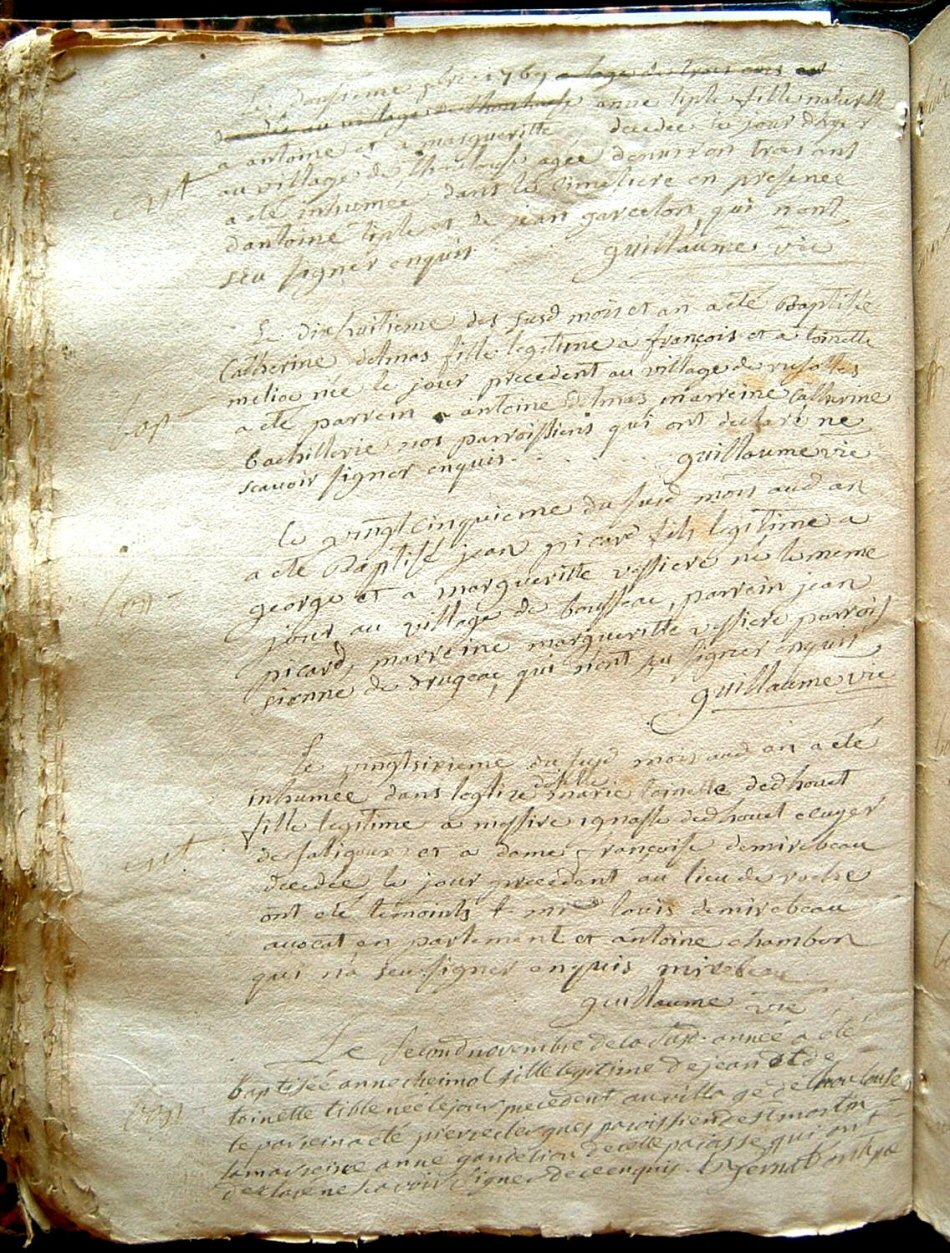 Le 1769 a lage de trois ans
au village de anne tiple fille naturelle
a antoine et a margueritte decedée le jour d'hyer
au village de agée denviron trois ans
ent a eté inhumée dans le Cimetiere en presence
dantoine tiple et de jean garcelon, qui nont
seu signer enquis guillaume vie
Le dixhuitieme des susd mois et an a eté Baptisée
Catherine delmas fille legitime a françois et a toinette
née le jour precedent au village de
bap a eté parrein antoine delmas marreine Catherine
bachillerie nos parroissiens qui ont declaré ne
scavoir signer enquis guillaume vie
Le vingtcinquieme du susd mois aud an
a eté Baptisé jean picard fils legitime a
george et a margueritte vessiere né le meme
bap jour au village de bousseac, parrein jean
picard, marreine margueritte vessiere parrois
sienne de drugeac, qui n'ont seu signer enquis
guillaume vie
Le vingtsixieme du susd mois aud an a eté
inhumée dans leglize marie toinette dedhouet
fille legitime a messire ignasse dedhouet ecuyer
ent et a dame françoise demirebeau
decedée le jour precedent au lieu de
ont eté temoints louis demirebeau
avocat en parlement et antoine chambon
qui n'a seu signer enquis mirebeau
guillaume vie
Le second novembre de la susd. année a été
baptisée anne fille legitime de jean et de
toinette née le jour precedent au village de
bap le parrein a été pierre paroissien de st
la marreine anne de cette paroisse qui ont
declaré ne scavoir signer de ce enquis.